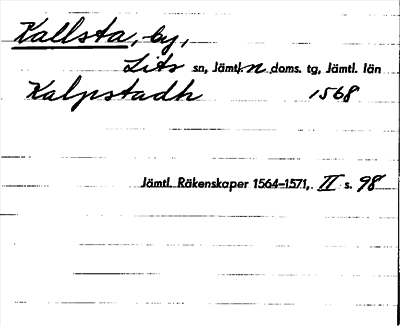 Kallsta, by,
Lits sn, Jämtl. n doms. tg, Jämtl. län
Kalpstadh 1568
Jämtl. Räkenskaper 1564-1571, II s. 98